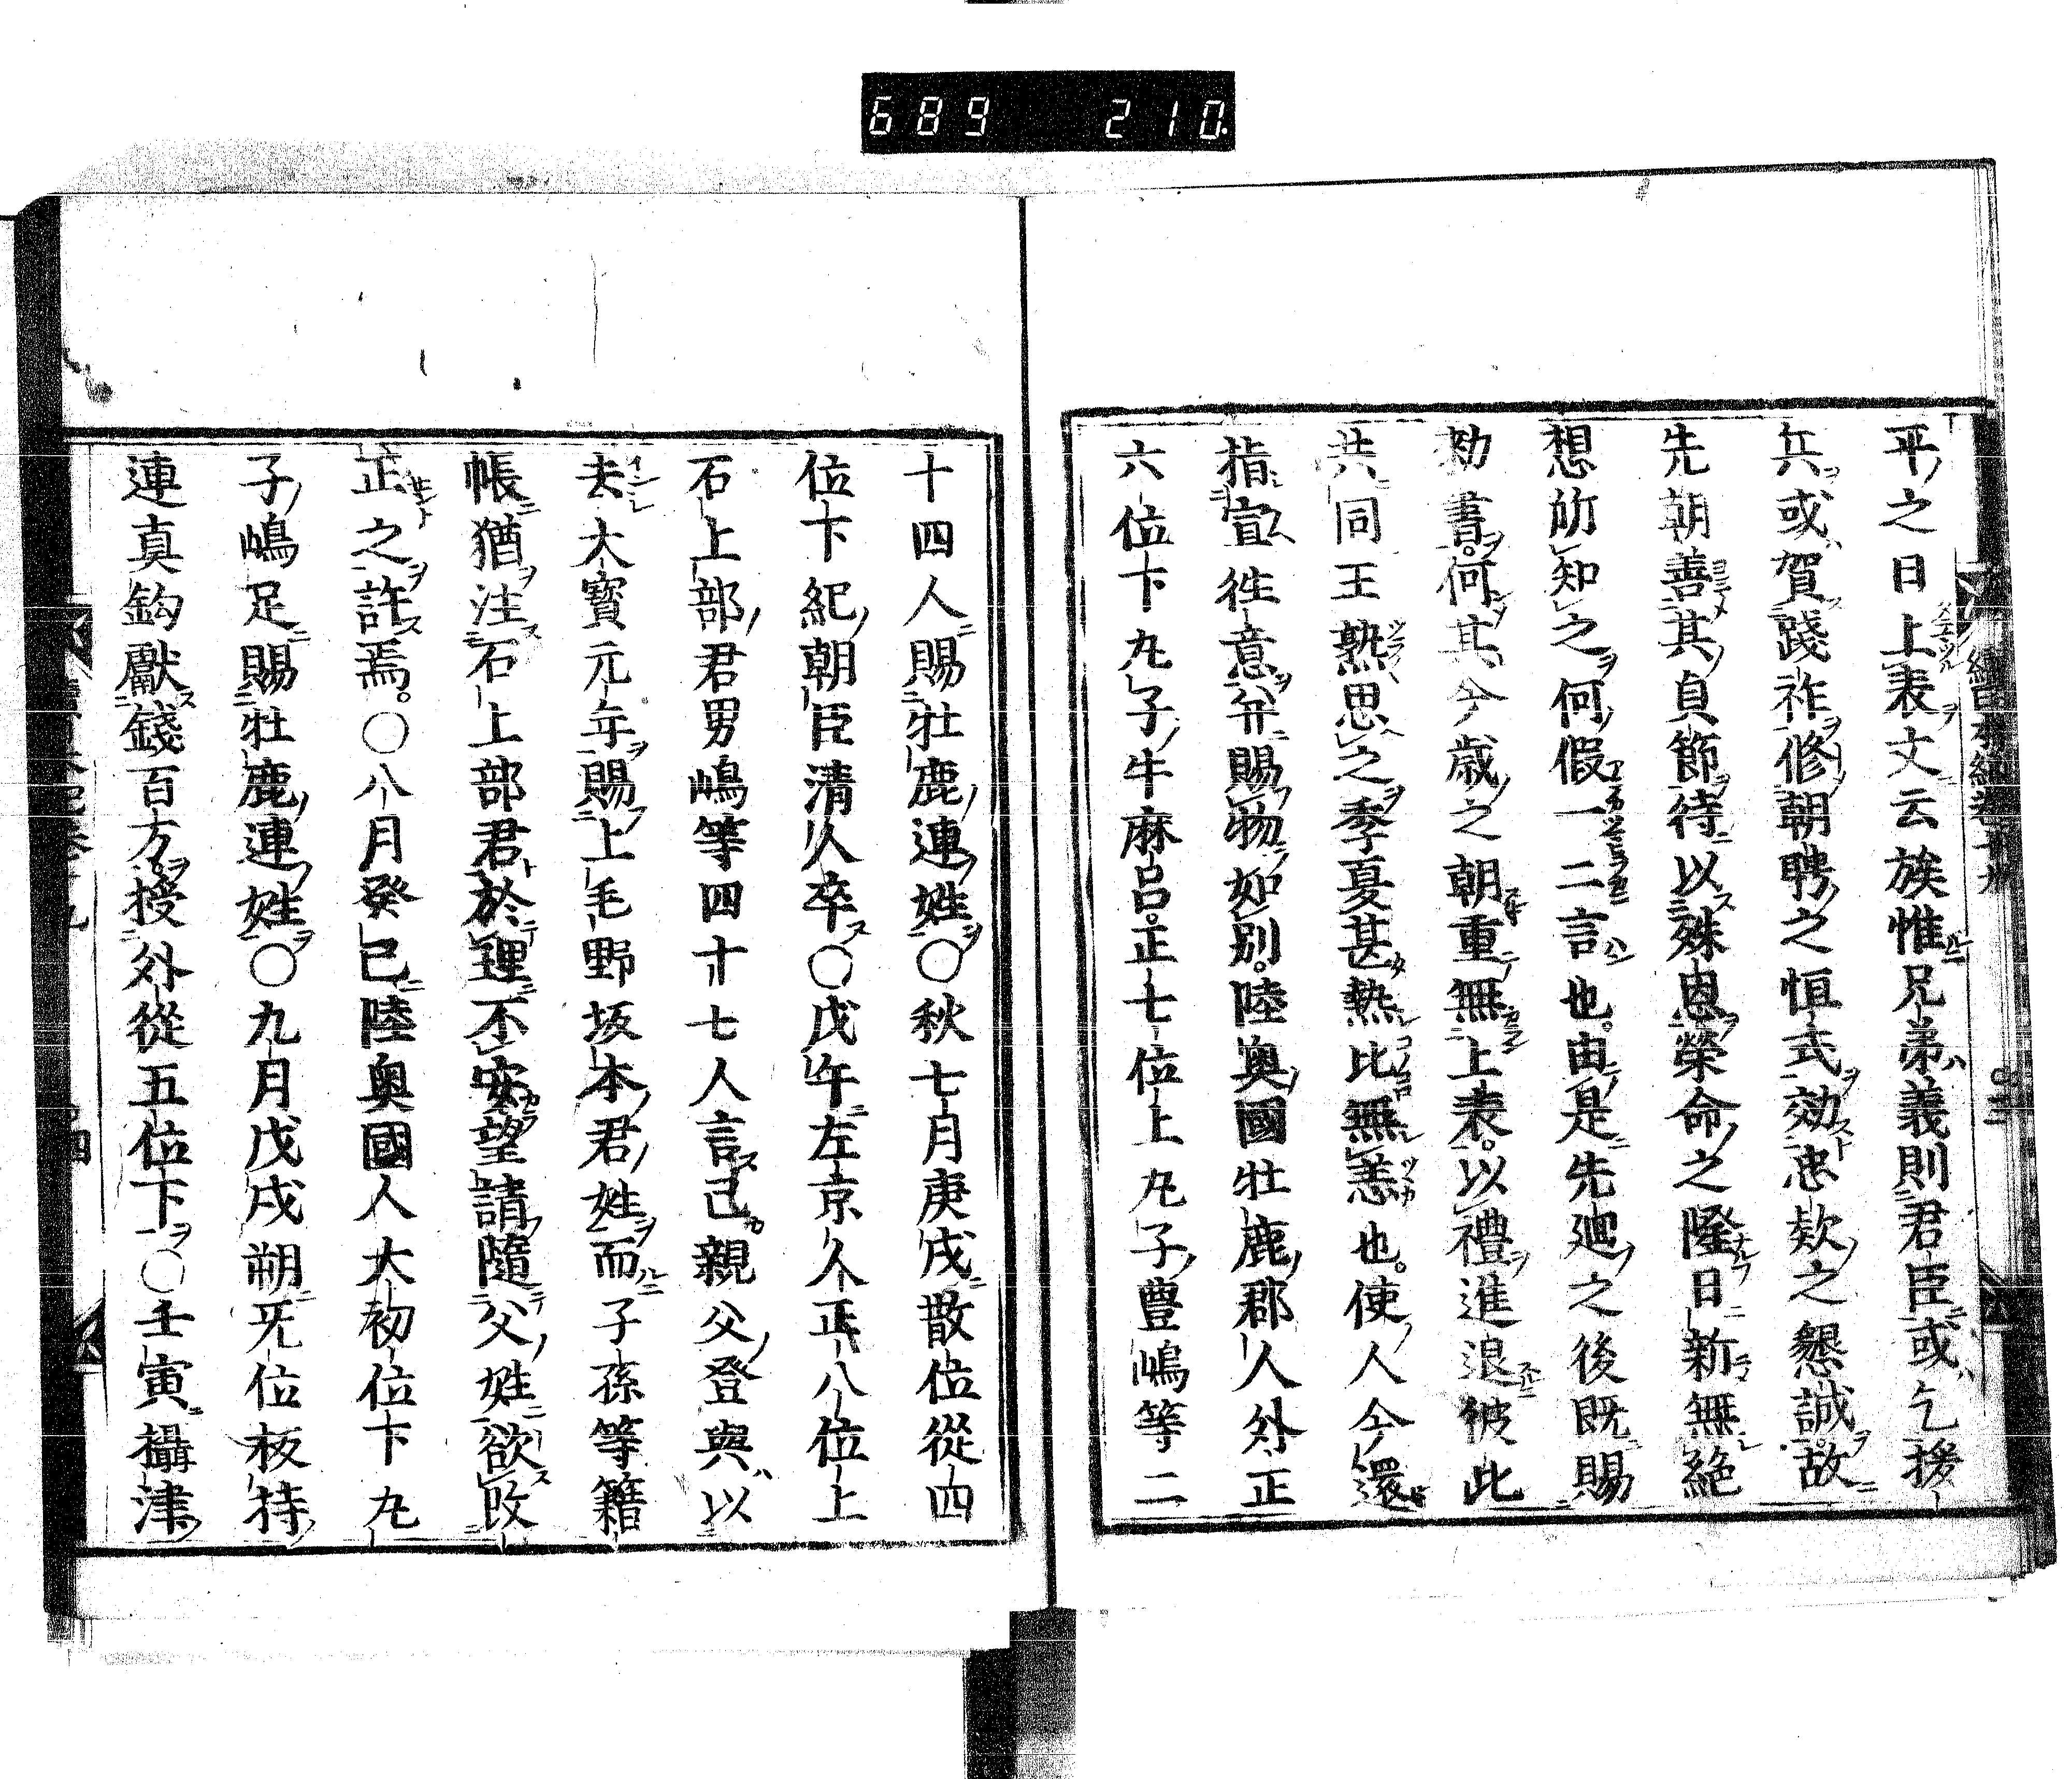 689 210
平之日上表文云族惟兄弟義則君臣或乞援
兵或賀踐祚修朝聘之恒式効忠欵之懇誠故
先朝善其貞節待以殊恩榮命之隆日新無絶
想所知之何假一二言也由是先廻之後既賜
勅書何其今歳之朝重無上表以禮進退彼此
共同王熟思之季夏甚熱比無恙也使人今還
指宣徃意并賜物如別陸奥國牡鹿郡人外正
六位下丸子牛麻呂正七位上丸子豊嶋等二
十四人賜牡鹿連姓〇秋七月庚戌散位從四
位下紀朝臣清人卒〇戊午左京人正八位上
石上部君男嶋等四十七人言己親父登與以
去大寳元年賜上毛野坂本君姓而子孫等籍
帳猶注石上部君於理不安望請隨父姓欲改
正之許焉〇八月癸巳陸奥國人大初位下丸
子嶋足賜牡鹿連姓〇九月戊戌朔旡位板持
連真釣獻錢百万授外從五位下〇壬寅攝津